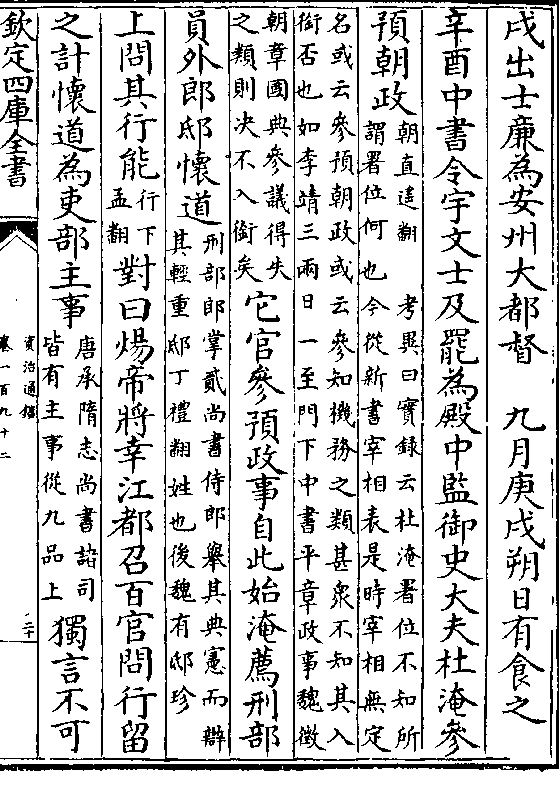 戌出士廉為安州大都督　九月庚戌朔日有食之
辛酉中書令宇文士及罷為殿中監御史大夫杜淹參
預朝政朝直遥翻　考異曰實錄云杜淹署位不知所
謂署位何也今從新書宰相表是時宰相無定
名或云參預朝政或云參知機務之類甚衆不知其入
銜否也如李靖三兩日一至門下中書平章政事魏徵
朝章國典參議得失
之類則决不入銜矣它官參預政事自此始淹薦刑部
員外郎邸懷道刑部郎掌貳尚書侍郎舉其典憲而辯
其輕重邸丁禮翻姓也後魏有邸珍
上問其行能行下
孟翻對曰煬帝將幸江都召百官問行留
之計懷道為吏部主事唐承隋志尚書諸司
皆有主事從九品上獨言不可
欽定四庫全書
資治通鑑
卷一百九十二
二十